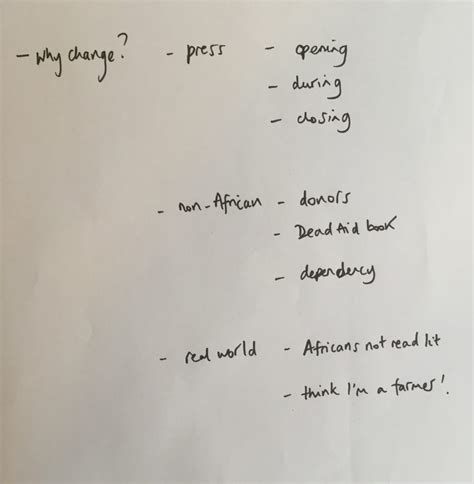 - why change? - press - opening
- during
- closing
- non-African - donors
- Dead Aid book
- dependency
- real world - Africans not read lit
- think I'm a farmer!